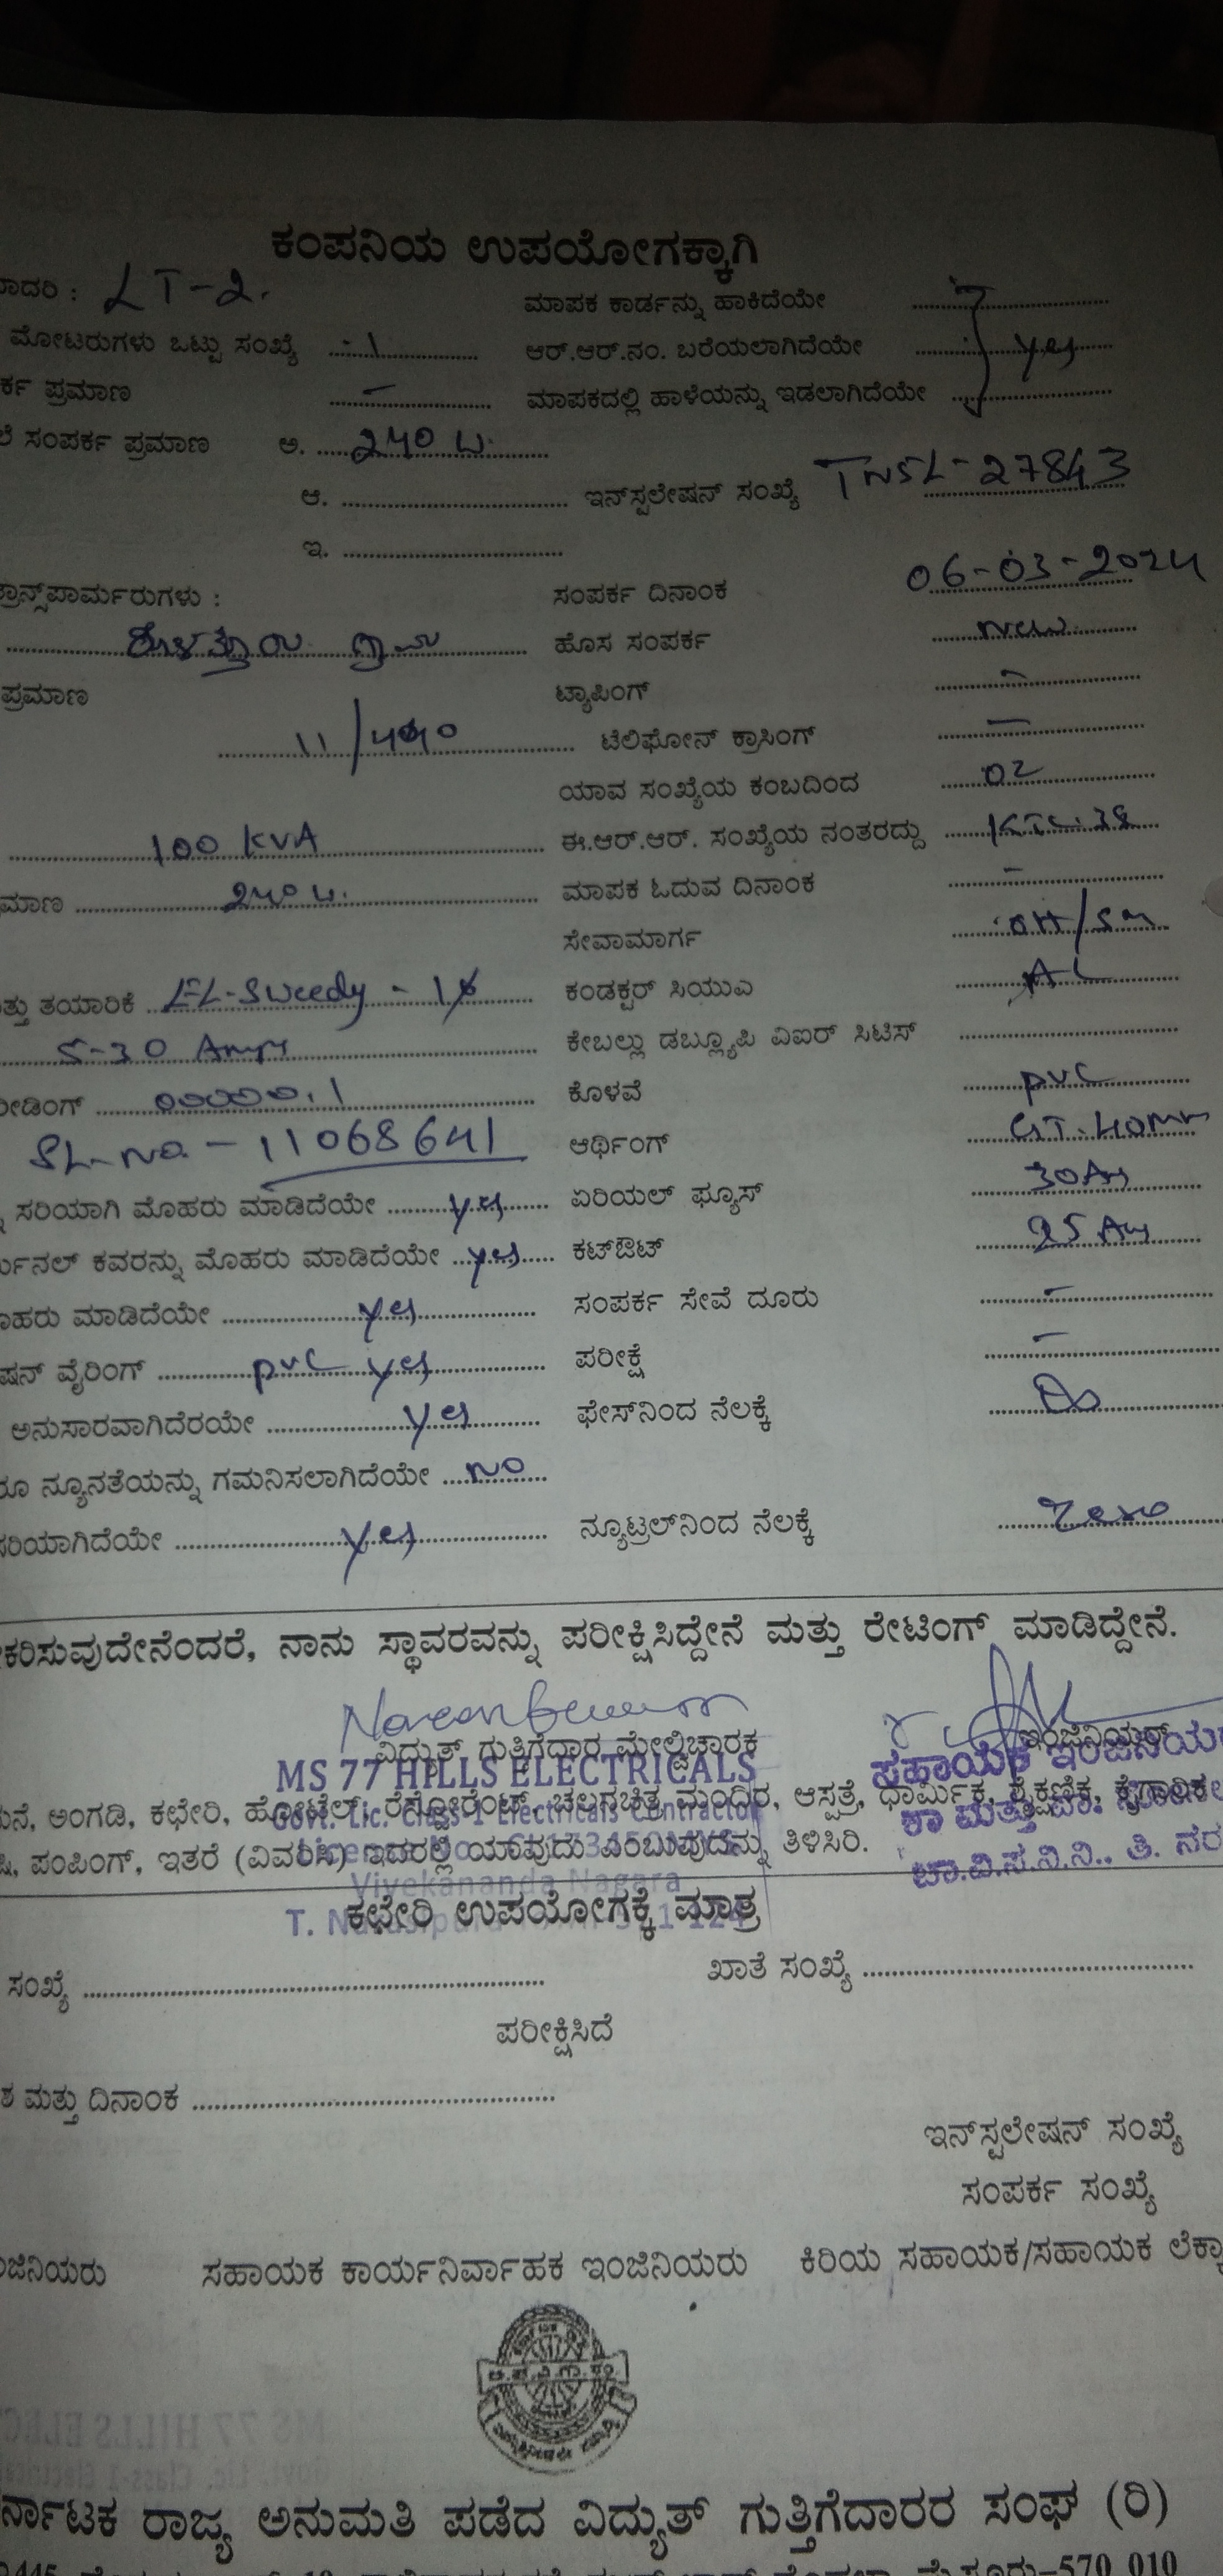 ಕಂಪನಿಯ ಉಪಯೋಗಕ್ಕಾಗಿ
ಾದರಿ : LT-2. ಮಾಪಕ ಕಾರ್ಡನ್ನು ಹಾಕಿದೆಯೇ
ಮೋಟರುಗಳು ಒಟ್ಟು ಸಂಖ್ಯೆ 1 ಆರ್.ಆರ್.ನಂ. ಬರೆಯಲಾಗಿದೆಯೇ yes
ರ್ಕ ಪ್ರಮಾಣ - ಮಾಪಕದಲ್ಲಿ ಹಾಳೆಯನ್ನು ಇಡಲಾಗಿದೆಯೇ
ಲೆ ಸಂಪರ್ಕ ಪ್ರಮಾಣ ಅ. 240 W.
ಆ. ಇನ್‌ಸ್ಟಲೇಷನ್ ಸಂಖ್ಯೆ TNSL-27843
ಇ.
ಟ್ರಾನ್ಸ್‌ಪಾರ್ಮರುಗಳು : ಸಂಪರ್ಕ ದಿನಾಂಕ 06-03-2024
ಹೊಸ ಸಂಪರ್ಕ new
ಪ್ರಮಾಣ ಟ್ಯಾಪಿಂಗ್ -
11/440 ಟೆಲಿಫೋನ್ ಕ್ರಾಸಿಂಗ್ -
ಯಾವ ಸಂಖ್ಯೆಯ ಕಂಬದಿಂದ 02
100 KVA ಈ.ಆರ್.ಆರ್. ಸಂಖ್ಯೆಯ ನಂತರದ್ದು
ಮಾಣ 240 W. ಮಾಪಕ ಓದುವ ದಿನಾಂಕ -
ಸೇವಾಮಾರ್ಗ OH/Sm
ತ್ತು ತಯಾರಿಕೆ EL-Sweedy - 1ø ಕಂಡಕ್ಟರ್ ಸಿಯುಎ AL
5-30 Amps ಕೇಬಲ್ಲು ಡಬ್ಲ್ಯೂಪಿ ಎಐರ್ ಸಿಟಿಸ್
ೀಡಿಂಗ್ 00000.1 ಕೊಳವೆ PVC
SL-No. - 11068641 ಆರ್ಥಿಂಗ್
ಸರಿಯಾಗಿ ಮೊಹರು ಮಾಡಿದೆಯೇ yes ಏರಿಯಲ್ ಫ್ಯೂಸ್ 30 Am
ರ್ಮಿನಲ್ ಕವರನ್ನು ಮೊಹರು ಮಾಡಿದೆಯೇ yes ಕಟ್‌ಔಟ್ 25 Am
ೊಹರು ಮಾಡಿದೆಯೇ yes ಸಂಪರ್ಕ ಸೇವೆ ದೂರು -
ಷನ್ ವೈರಿಂಗ್ PVC yes ಪರೀಕ್ಷೆ -
ಅನುಸಾರವಾಗಿದೆರಯೇ yes ಫೇಸ್‌ನಿಂದ ನೆಲಕ್ಕೆ
ರೂ ನ್ಯೂನತೆಯನ್ನು ಗಮನಿಸಲಾಗಿದೆಯೇ NO
ಸರಿಯಾಗಿದೆಯೇ yes ನ್ಯೂಟ್ರಲ್‌ನಿಂದ ನೆಲಕ್ಕೆ Zero
ಕರಿಸುವುದೇನೆಂದರೆ, ನಾನು ಸ್ಥಾವರವನ್ನು ಪರೀಕ್ಷಿಸಿದ್ದೇನೆ ಮತ್ತು ರೇಟಿಂಗ್ ಮಾಡಿದ್ದೇನೆ.
ವಿದ್ಯುತ್ ಗುತ್ತಿಗೆದಾರ ಮೇಲ್ವಿಚಾರಕ ಇಂಜಿನಿಯರ್
MS 77 HILLS ELECTRICALS ಸಹಾಯಕ ಇಂಜಿನಿಯ
ಮನೆ, ಅಂಗಡಿ, ಕಛೇರಿ, ಹೋಟೆಲ್, ರೆಸ್ಟೋರೆಂಟ್, ಚಲನಚಿತ್ರ ಮಂದಿರ, ಆಸ್ಪತ್ರೆ, ಧಾರ್ಮಿಕ, ಶೈಕ್ಷಣಿಕ, ಕೈಗಾರಿಕ
Govt. Lic. Class-1 Electricals Contractor
ಪಂಪಿಂಗ್, ಇತರೆ (ವಿವರಿಸಿ) ಇದರಲ್ಲಿ ಯಾವುದು ಎಂಬುವುದನ್ನು ತಿಳಿಸಿರಿ.
ಚಾ.ವಿ.ಸ.ನಿ.ನಿ., ತಿ. ನರ
Vivekananda Nagara
ಕಛೇರಿ ಉಪಯೋಗಕ್ಕೆ ಮಾತ್ರ
ಸಂಖ್ಯೆ ಖಾತೆ ಸಂಖ್ಯೆ
ಪರೀಕ್ಷಿಸಿದೆ
ಶ ಮತ್ತು ದಿನಾಂಕ
ಇನ್‌ಸ್ಟಲೇಷನ್ ಸಂಖ್ಯೆ
ಸಂಪರ್ಕ ಸಂಖ್ಯೆ
ಂಜಿನಿಯರು ಸಹಾಯಕ ಕಾರ್ಯನಿರ್ವಾಹಕ ಇಂಜಿನಿಯರು ಕಿರಿಯ ಸಹಾಯಕ/ಸಹಾಯಕ ಲೆಕ್ಕಾ
ರ್ನಾಟಕ ರಾಜ್ಯ ಅನುಮತಿ ಪಡೆದ ವಿದ್ಯುತ್ ಗುತ್ತಿಗೆದಾರರ ಸಂಘ (ರಿ)